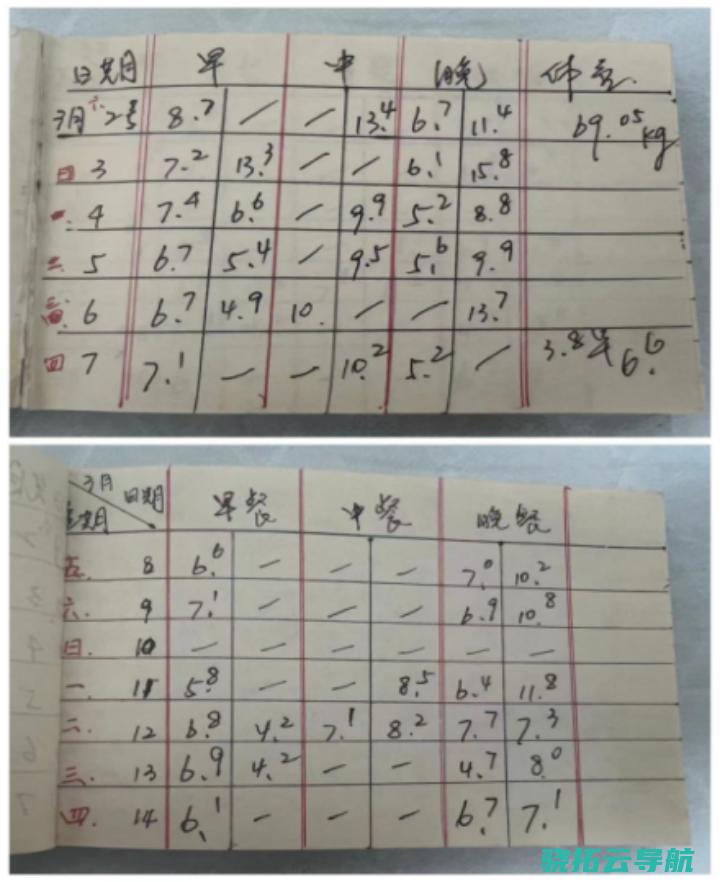 日期 早 中 晚 体重
3月 六 2号 8.7 — — 13.4 6.7 11.4 69.05kg
日 3 7.2 13.3 — — 6.1 15.8
一 4 7.4 6.6 — 9.9 5.2 8.8
二 5 6.7 5.4 — 9.5 5.6 9.9
三 6 6.7 4.9 10. — — 13.7
四 7 7.1 — — 10.2 5.2 — 3.8早 6.6
3月 日期 早餐 中餐 晚餐
星期
五. 8 6.6 — — — 7.0 10.2
六. 9 7.1 — — — 6.9 10.8
日. 10 — — — — — —
一. 11 5.8 — — 8.5 6.4 11.8
二. 12 6.8 4.2 7.1 8.2 7.7 7.3
三. 13 6.9 4.2 — — 4.7 8.0
四. 14 6.1 — — — 6.7 7.1
骁拓云导航